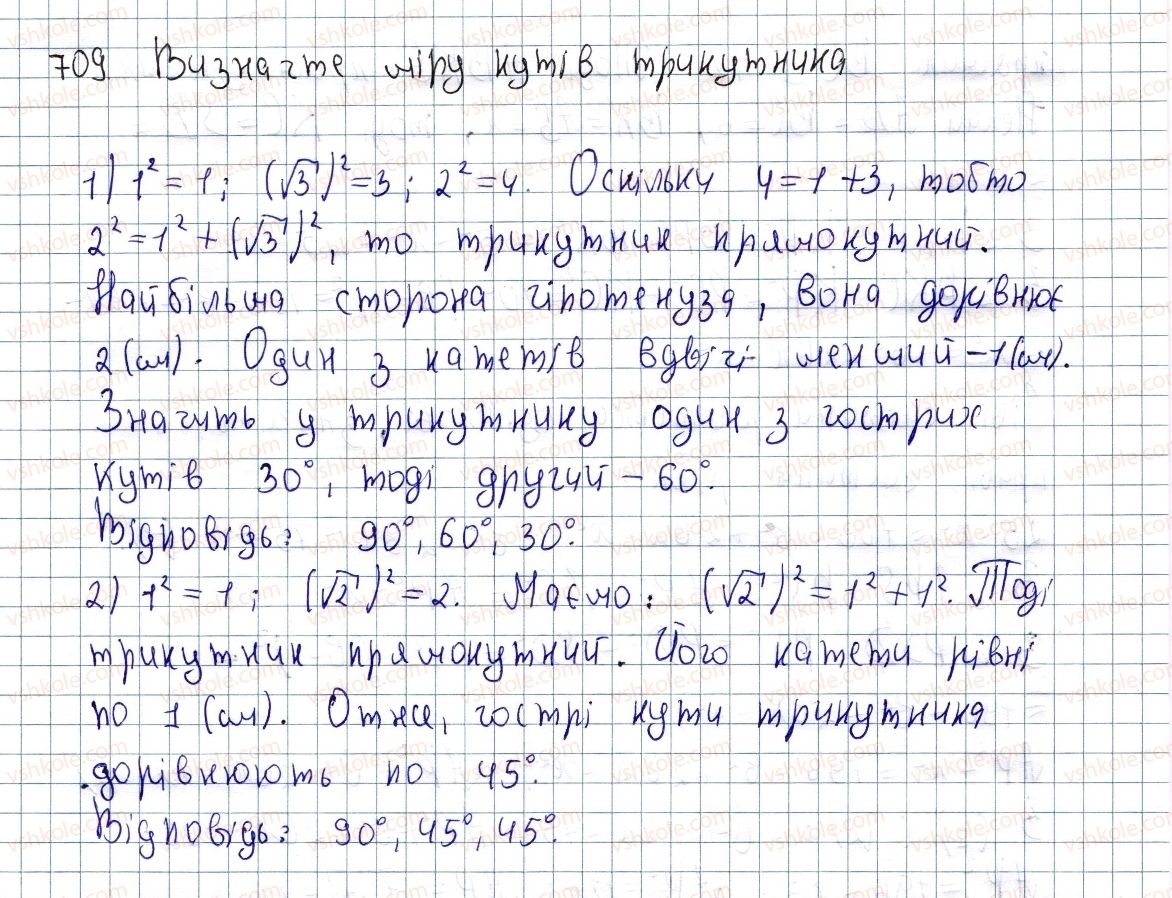 709 Визначте міру кутів трикутника
1) 1² = 1; (√3)² = 3; 2² = 4. Оскільки 4 = 1 + 3, тобто
2² = 1² + (√3)², то трикутник прямокутний.
Найбільша сторона гіпотенуза, вона дорівнює
2 (см). Один з катетів вдвічі менший – 1 (см).
Значить у трикутнику один з гострих
кутів 30°, тоді другий – 60°.
Відповідь: 90°, 60°, 30°.
2) 1² = 1; (√2)² = 2. Маємо: (√2)² = 1² + 1². Тоді
трикутник прямокутний. Його катети рівні
по 1 (см). Отже, гострі кути трикутника
дорівнюють по 45°.
Відповідь: 90°, 45°, 45°.